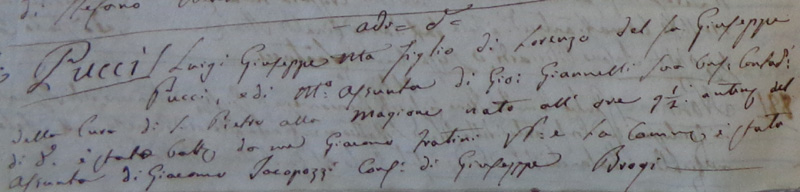 di Stefano
adi= d.o
Pucci / Luigi Giuseppe Ma figlio di Lorenzo del fu Giuseppe
Pucci, e di M.a Assunta di Gio: Giannelli sua Cons:
della Cura di S. Pietro alla Magione nato all'ore 9 1/2 antim: del
di d.o è stato batt: da me Giacomo Fratini e la Comre è stata
Assunta di Giacomo Jacopozzi Cons: di Giuseppe Brogi